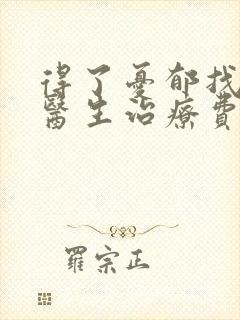 得了憂郁找
醫生治療費
羅宗正